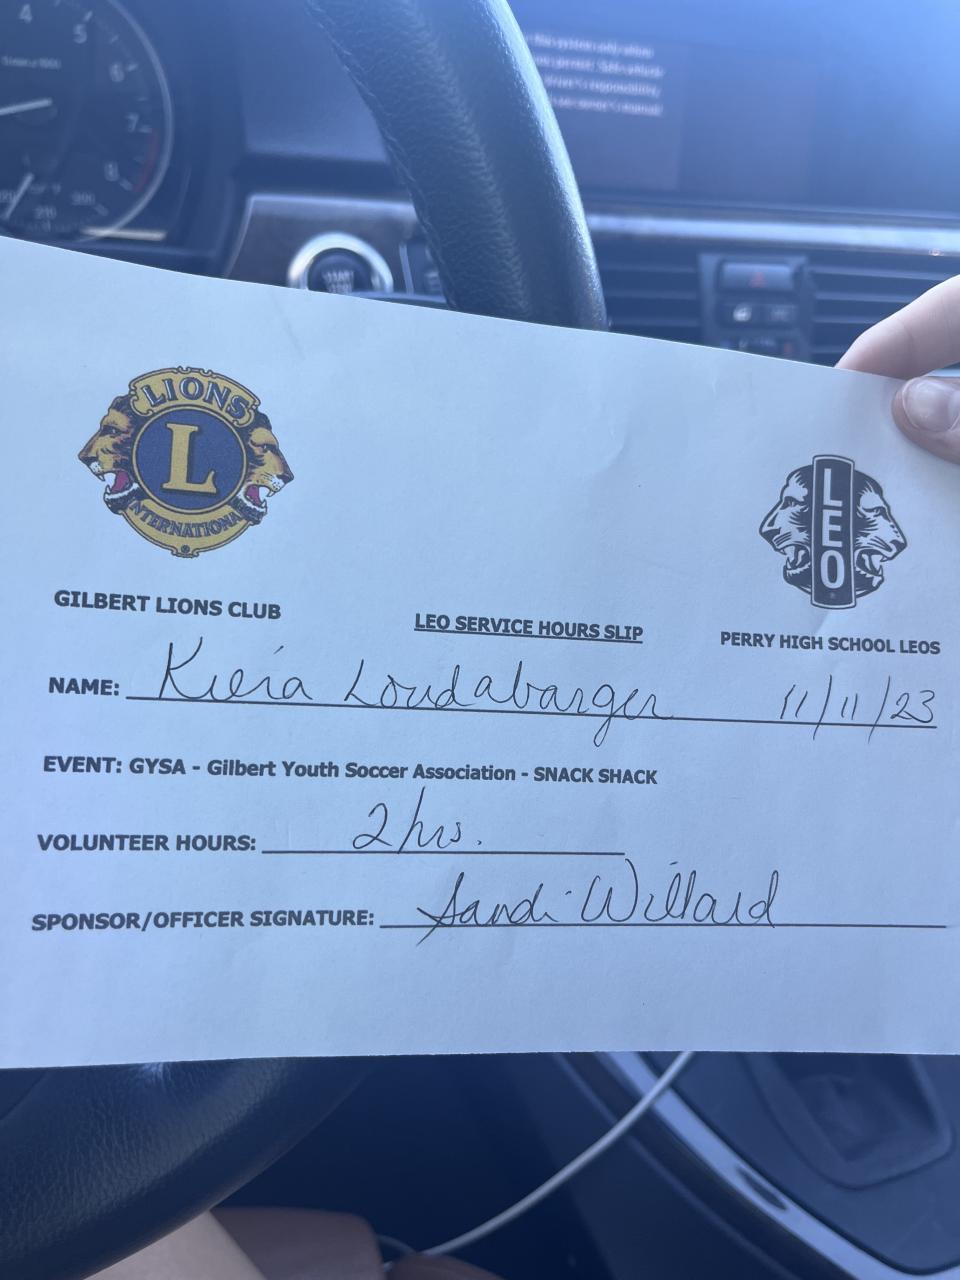 4
5
6
7
8
this system only when
LIONS
L
INTERNATIONAL
®
LEO
GILBERT LIONS CLUB
LEO SERVICE HOURS SLIP
PERRY HIGH SCHOOL LEOS
NAME: Kieia Loudabarger 11/11/23
EVENT: GYSA - Gilbert Youth Soccer Association - SNACK SHACK
VOLUNTEER HOURS: 2 hrs.
SPONSOR/OFFICER SIGNATURE: Sandi Willard